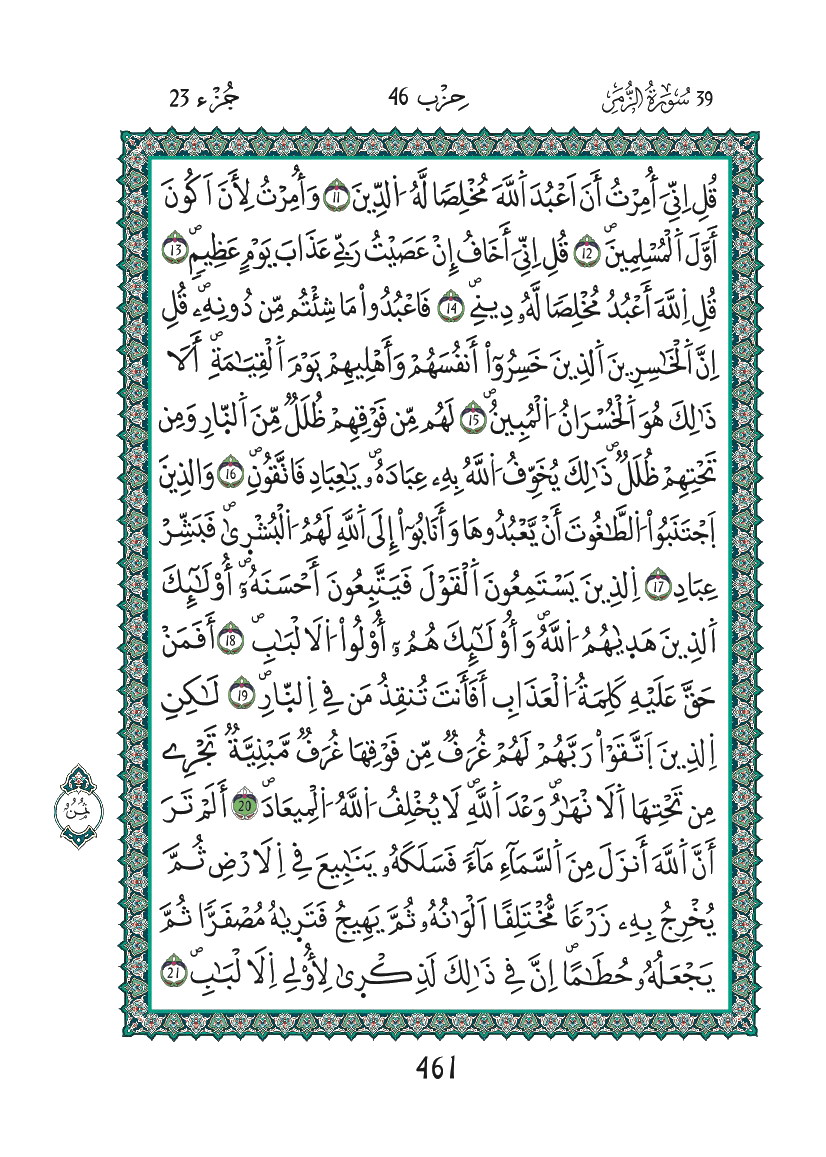 39 سُورَةُ الزُّمَرِ حِزْب 46 جُزْء 23
قُلِ اِنِّيَ أُمِرْتُ أَنَ اَعْبُدَ اَ۬للَّهَ مُخْلِصاٗ لَّهُ اُ۬لدِّينَ 11 وَأُمِرْتُ لِأَنَ اَكُونَ
أَوَّلَ اَ۬لْمُسْلِمِينَۖ 12 قُلِ اِنِّيَ أَخَافُ إِنْ عَصَيْتُ رَبِّے عَذَابَ يَوْمٍ عَظِيمٖۖ 13
قُلِ اِ۬للَّهَ أَعْبُدُ مُخْلِصاٗ لَّهُۥ دِينِےۖ 14 فَاعْبُدُواْ مَا شِئْتُم مِّن دُونِهِۦۖ قُلِ
اِنَّ اَ۬لْخَٰسِرِينَ اَ۬لذِينَ خَسِرُوٓاْ أَنفُسَهُمْ وَأَهْلِيهِمْ يَوْمَ اَ۬لْقِيَٰمَةِۖ أَلَا
ذَٰلِكَ هُوَ اَ۬لْخُسْرَانُ اُ۬لْمُبِينُۖ 15 لَهُم مِّن فَوْقِهِمْ ظُلَلٞ مِّنَ اَ۬لنّ۪ارِ وَمِن
تَحْتِهِمْ ظُلَلٞۖ ذَٰلِكَ يُخَوِّفُ اُ۬للَّهُ بِهِۦ عِبَادَهُۥۖ يَٰعِبَادِ فَاتَّقُونِۖ 16 وَالذِينَ
اَ۪جْتَنَبُواْ اُ۬لطَّٰغُوتَ أَنْ يَّعْبُدُوهَا وَأَنَابُوٓاْ إِلَى اَ۬للَّهِ لَهُمُ اُ۬لْبُشْر۪يٰۖ فَبَشِّرْ
عِبَادِ 17 اِ۬لذِينَ يَسْتَمِعُونَ اَ۬لْقَوْلَ فَيَتَّبِعُونَ أَحْسَنَهُۥٓۖ أُوْلَٰٓئِكَ
اَ۬لذِينَ هَد۪يٰهُمُ اُ۬للَّهُۖ وَأُوْلَٰٓئِكَ هُمُۥٓ أُوْلُواْ اُ۬لَالْبَٰبِۖ 18 أَفَمَنْ
حَقَّ عَلَيْهِ كَلِمَةُ اُ۬لْعَذَابِ أَفَأَنتَ تُنقِذُ مَن فِے اِ۬لنّ۪ارِۖ 19 لَٰكِنِ
اِ۬لذِينَ اَ۪تَّقَوْاْ رَبَّهُمْ لَهُمْ غُرَفٞ مِّن فَوْقِهَا غُرَفٞ مَّبْنِيَّةٞ تَجْرِے
مِن تَحْتِهَا اَ۬لَانْهَٰرُۖ وَعْدَ اَ۬للَّهِۖ لَا يُخْلِفُ اُ۬للَّهُ اُ۬لْمِيعَادَۖ 20 أَلَمْ تَرَ
أَنَّ اَ۬للَّهَ أَنزَلَ مِنَ اَ۬لسَّمَآءِ مَآءٗ فَسَلَكَهُۥ يَنَٰبِيعَ فِے اِ۬لَارْضِ ثُمَّ
يُخْرِجُ بِهِۦ زَرْعاٗ مُّخْتَلِفاً اَلْوَٰنُهُۥ ثُمَّ يَهِيجُ فَتَر۪يٰهُ مُصْفَرّاٗ ثُمَّ
يَجْعَلُهُۥ حُطَٰماًۖ اِنَّ فِے ذَٰلِكَ لَذِكْر۪يٰ لِأُوْلِے اِ۬لَالْبَٰبِۖ 21
ثُمُنْ
461